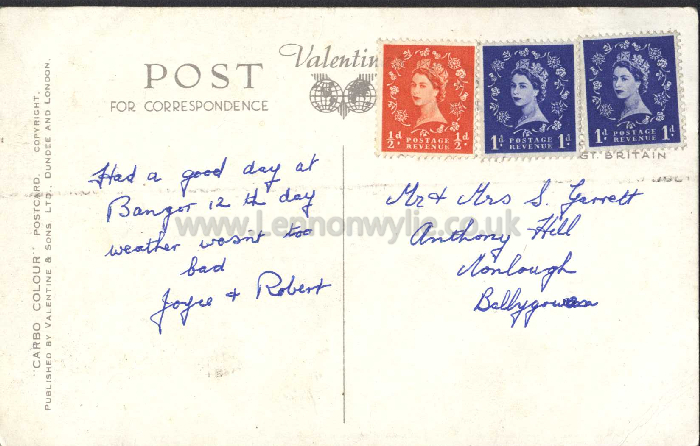 Valentin
POST
FOR CORRESPONDENCE
"CARBO COLOUR" POSTCARD. COPYRIGHT.
PUBLISHED BY VALENTINE & SONS, LTD., DUNDEE AND LONDON.
½d ½d
POSTAGE
REVENUE
1d 1d
POSTAGE
REVENUE
1d 1d
POSTAGE
REVENUE
GT. BRITAIN
Had a good day at
Bangor 12 th day
weather wasnt too
bad
Joyce + Robert
Mr & Mrs S. Garrett
Anthony Hill
Monlough
Ballygowan
www.Lennonwylie.co.uk